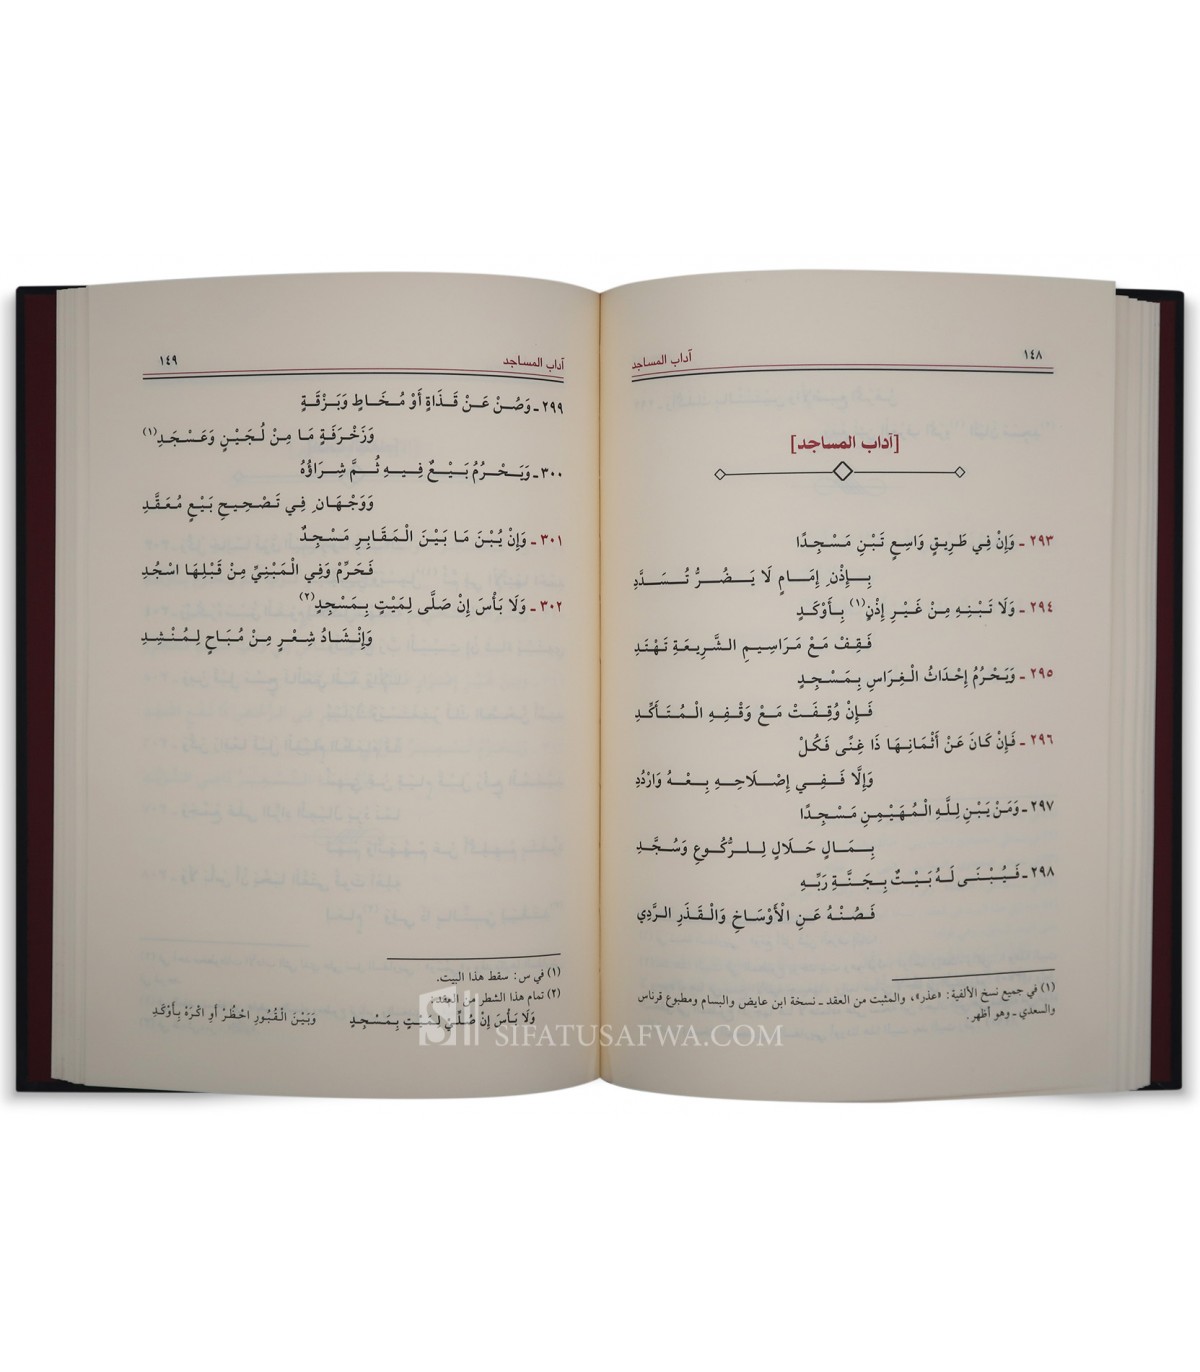 آداب المساجد ١٤٨
[آداب المساجد]
٢٩٣ ـ وَإِنْ فِي طَرِيقٍ وَاسِعٍ تَبْنِ مَسْجِدًا
بِإِذْنِ إِمَامٍ لَا يَضُرُّ تُسَدَّدِ
٢٩٤ ـ وَلَا تَبْنِهِ مِنْ غَيْرِ إِذْنٍ (١) بِأَوْكَدِ
فَقِفْ مَعْ مَرَاسِيمِ الشَّرِيعَةِ تَهْتَدِ
٢٩٥ ـ وَيَحْرُمُ إِحْدَاثُ الْغِرَاسِ بِمَسْجِدٍ
فَإِنْ وُقِفَتْ مَعْ وَقْفِهِ الْمُتَأَكِّدِ
٢٩٦ ـ فَإِنْ كَانَ عَنْ أَثْمَانِهَا ذَا غِنًى فَكُلْ
وَإِلَّا فَفِي إِصْلَاحِهِ بِعْهُ وَارْدُدِ
٢٩٧ ـ وَمَنْ يَبْنِ لِلَّهِ الْمُهَيْمِنِ مَسْجِدًا
بِمَالٍ حَلَالٍ لِلرُّكُوعِ وَسُجَّدِ
٢٩٨ ـ فَيُبْنَى لَهُ بَيْتٌ بِجَنَّةِ رَبِّهِ
فَصُنْهُ عَنِ الْأَوْسَاخِ وَالْقَذَرِ الرَّدِي
(١) في جميع نسخ الألفية: «عذر»، والمثبت من العقد ـ نسخة ابن عايض والبسام ومطبوع قرناس
والسعدي ـ وهو أظهر.
آداب المساجد ١٤٩
٢٩٩ ـ وَصُنْ عَنْ قَذَاةٍ أَوْ مُخَاطٍ وَبَزْقَةٍ
وَزَخْرَفَةٍ مَا مِنْ لُجَيْنٍ وَعَسْجَدِ (١)
٣٠٠ ـ وَيَحْرُمُ بَيْعٌ فِيهِ ثُمَّ شِرَاؤُهُ
وَوَجْهَانِ فِي تَصْحِيحِ بَيْعٍ مُعَقَّدِ
٣٠١ ـ وَإِنْ يُبْنَ مَا بَيْنَ الْمَقَابِرِ مَسْجِدٌ
فَحَرِّمْ وَفِي الْمَبْنِيِّ مِنْ قَبْلِهَا اسْجُدِ
٣٠٢ ـ وَلَا بَأْسَ إِنْ صَلَّى لِمَيْتٍ بِمَسْجِدٍ (٢)
وَإِنْشَادُ شِعْرٍ مِنْ مُبَاحٍ لِمُنْشِدِ
(١) في س: سقط هذا البيت.
(٢) تمام هذا الشطر من العقد:
وَلَا بَأْسَ إِنْ صُلِّيْ لِمَيْتٍ بِمَسْجِدٍ وَبَيْنَ الْقُبُورِ احْظُرْ أَوِ اكْرَهْ بِأَوْكَدِ
SIFATUSAFWA.COM